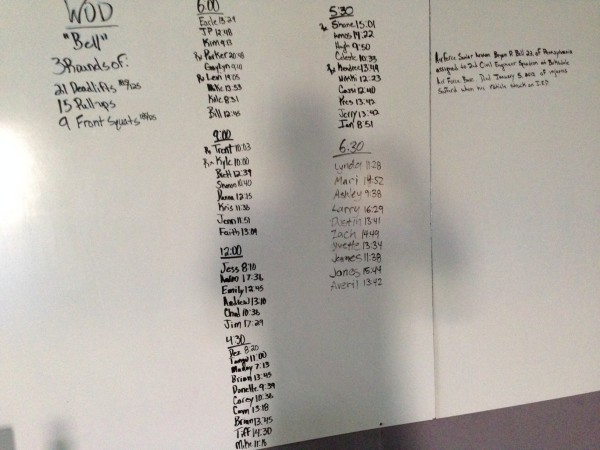 WOD
"Bell"
3 Rounds of:
21 Deadlifts 185/125
15 Pull-ups
9 Front Squats 185/125
6:00
Earle 13:29
JP 12:48
Kim 9:13
Rx Parker 20:48
9:41
Rx Levi 19:05
Mike 13:53
Kyle 8:31
Bill 12:45
9:00
Rx Trent 10:03
Rx Kyle 10:00
Brett 12:39
Shawn 10:40
12:15
Kris 11:36
Jenn 11:51
Faith 13:09
12:00
Jess 8:10
17:36
Emily 12:45
Andrew 13:10
Chad 10:36
Jim 17:29
4:30
Dez 8:20
11:00
7:13
Brian 13:45
Donette 9:39
Corey 10:36
Cam 13:18
Brian 13:45
Tiff 14:30
Mike 11:15
5:30
Rx Shane 15:01
Amos 14:22
Hugh 9:50
Celeste 10:33
Rx 13:49
12:23
Cassi 12:40
Kres 13:42
Jerry 13:42
Ian 8:51
6:30
Lyndsy 11:28
Mari 14:52
Ashley 9:38
Larry 16:29
Dustin 13:41
Zach 14:49
Yvette 13:34
Joannes 11:38
James 15:44
Averil 13:42
Air Force Senior Airman Bryan R Bell 23, of Pennsylvania
assigned to 2nd Civil Engineer Squadron at Barksdale
Air Force Base. Died January 5, 2012 of injuries
suffered when his vehicle struck an I.E.D.